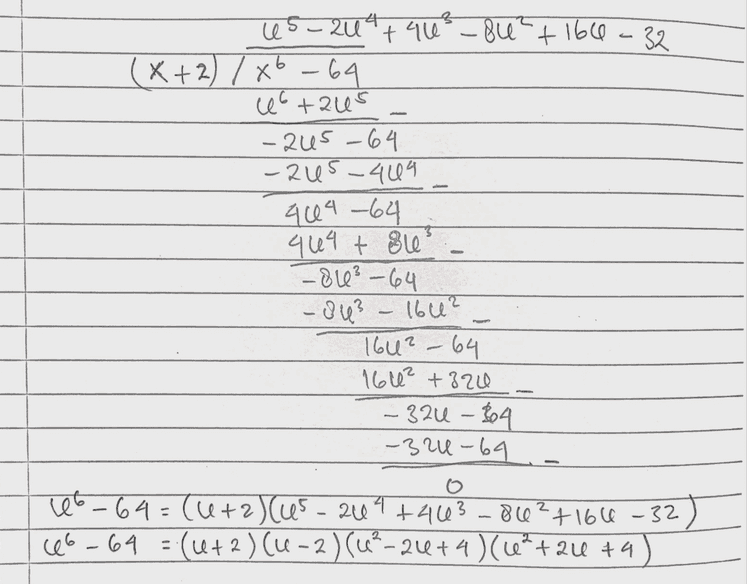 u⁵ - 2u⁴ + 4u³ - 8u² + 16u - 32
(x+2) / x⁶ - 64
u⁶ + 2u⁵ -
-2u⁵ - 64
-2u⁵ - 4u⁴ -
4u⁴ - 64
4u⁴ + 8u³ -
-8u³ - 64
-8u³ - 16u² -
16u² - 64
16u² + 32u -
-32u - 64
-32u - 64 -
0
u⁶ - 64 = (u+2)(u⁵ - 2u⁴ + 4u³ - 8u² + 16u - 32)
u⁶ - 64 = (u+2)(u-2)(u²-2u+4)(u²+2u+4)